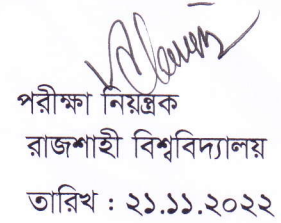 পরীক্ষা নিয়ন্ত্রক
রাজশাহী বিশ্ববিদ্যালয়
তারিখ : ২১.১১.২০২২